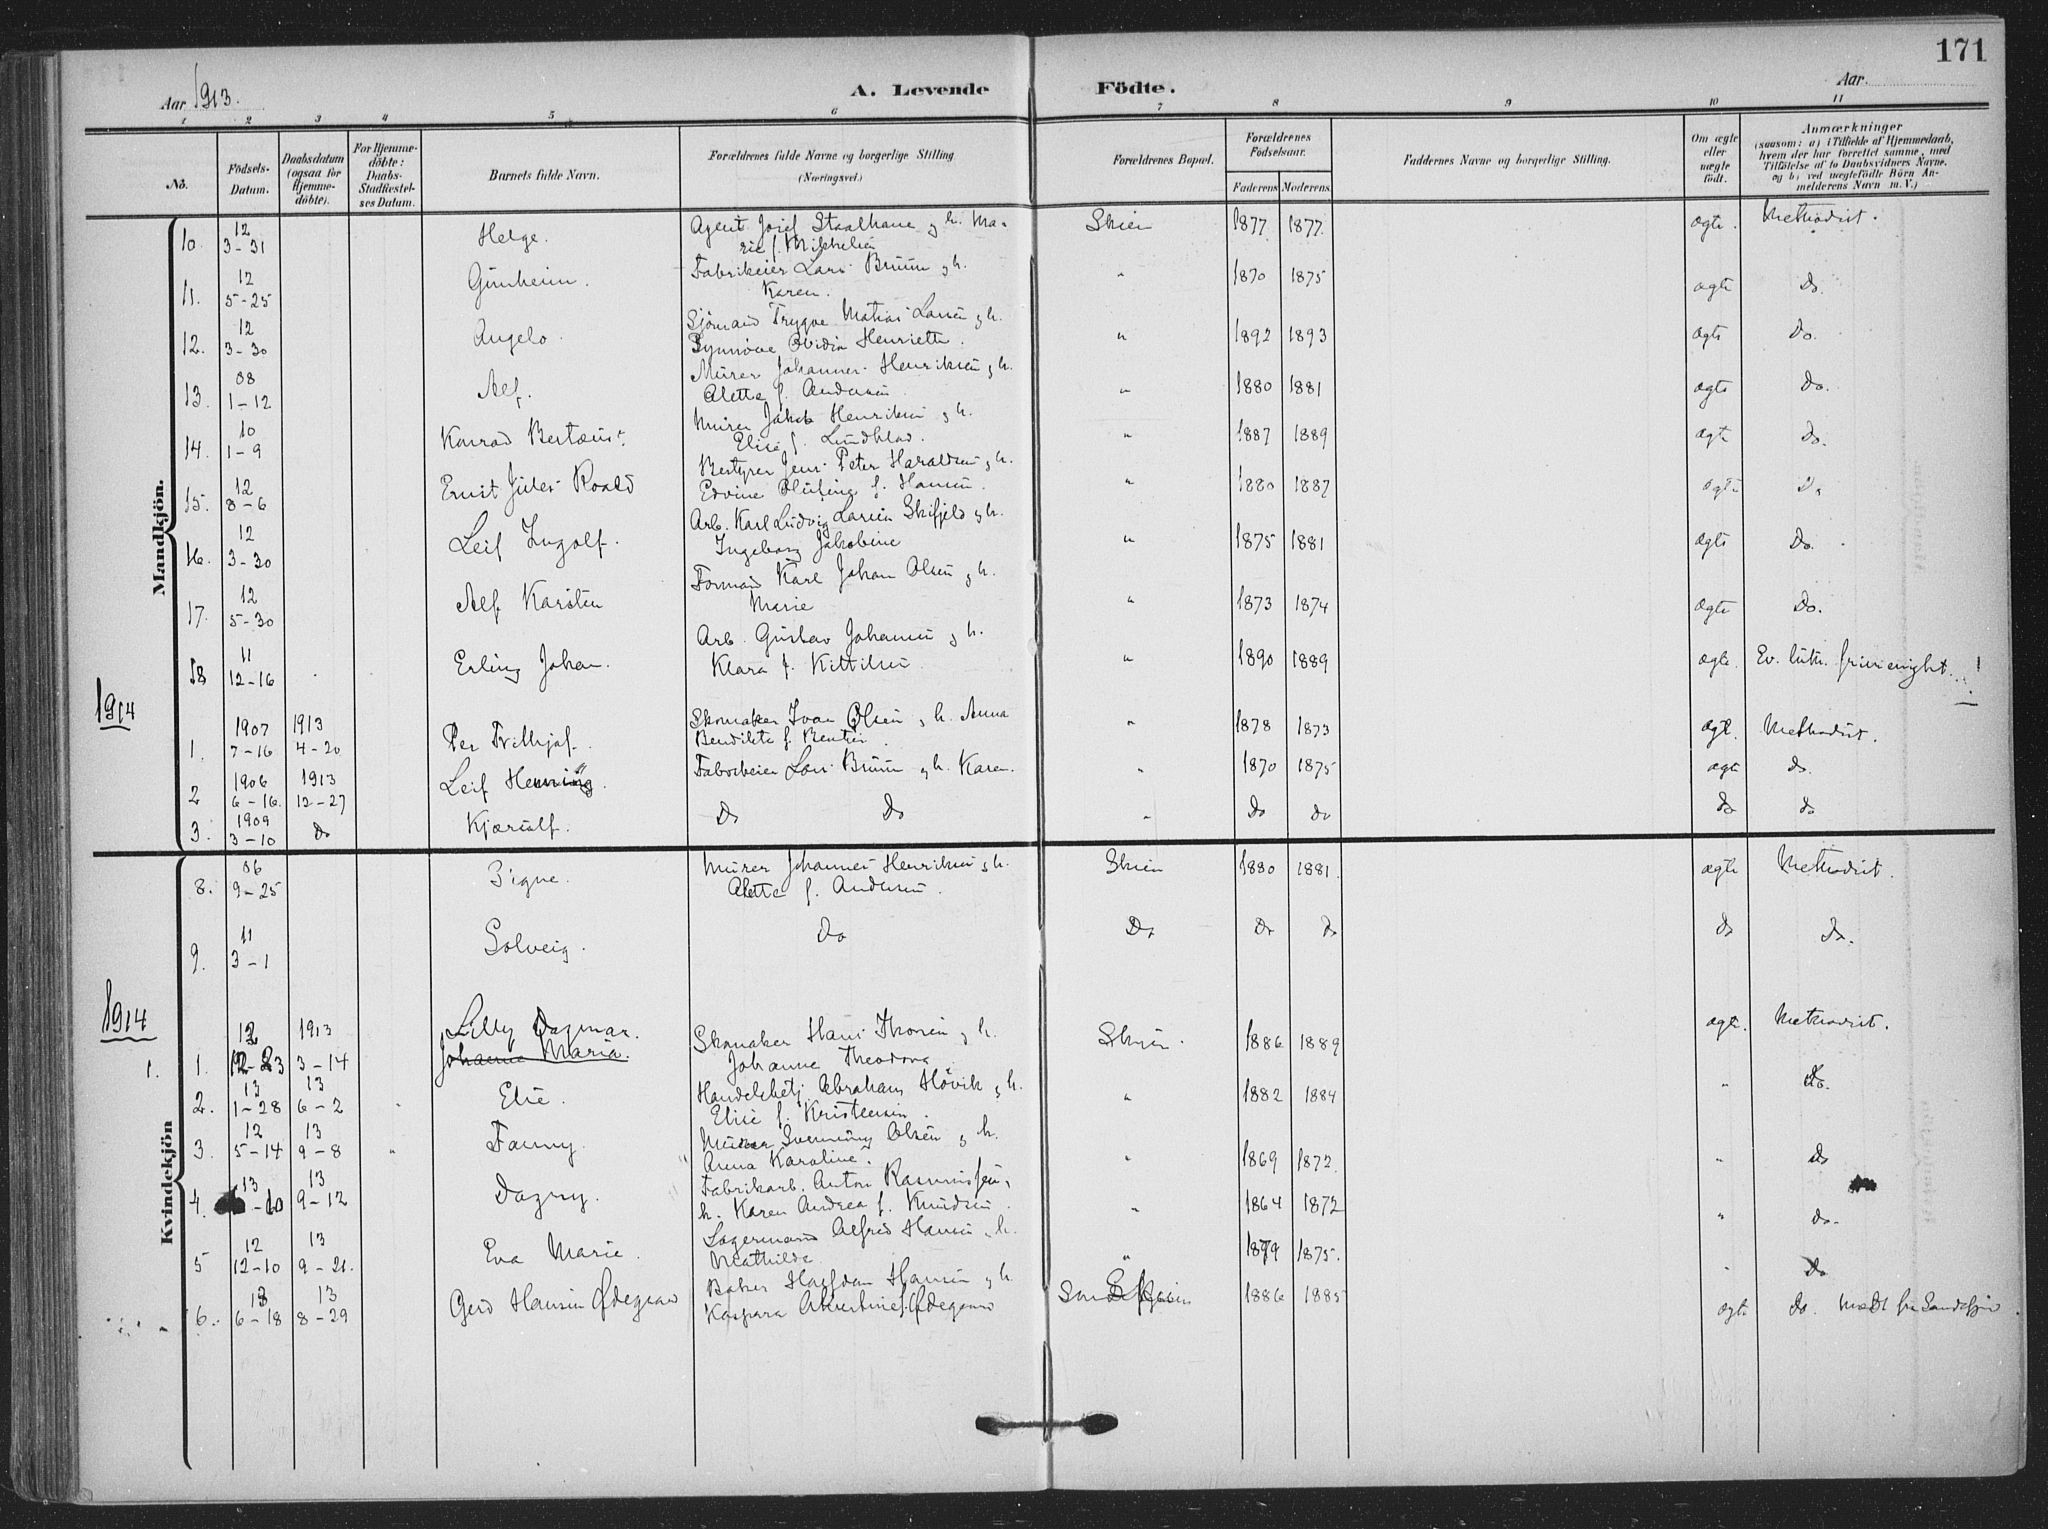 171
Aar 1913.
A. Levende Födte.
Aar
1 2 3 4 5 6 7 8 9 10 11
No.
Födsels-Datum.
Daabsdatum (ogsaa for Hjemme-döbte).
For Hjemme-döbte: Daabs-Stadfæstel-ses Datum.
Barnets fulde Navn.
Forældrenes fulde Navne og borgerlige Stilling (Næringsvei.)
Forældrenes Bopæl.
Forældrenes Födselsaar.
Faderens Moderens.
Faddernes Navne og borgerlige Stilling.
Om ægte eller uægte födt.
Anmærkninger
(saasom: a) i Tilfælde af Hjemmedaab, hvem der har forrettet samme, med Tilföielse af to Daabsvidners Navne, og b) ved uægtefödte Börn An-melderens Navn m. V.)
Mandkjön.
10. 12 3-31 Helge. Agent Josef Staalhane og h. Ma-rie f. Mikkelsen Skien 1877. 1877. ægte. Methodist.
11. 12 5-25 Karen. " 1870 1875 ægte Do.
12. 12 3-30 Angelo. Sjömand Trygve Matias Larsen og h. Henriette. " 1892 1893 ægte Do.
13. 08 1-12 Alf. Murer Johannes Henriksen og h. Alette f. Andersen " 1880 1881 ægte Do.
14. 10 1-9 Konrad Murer Jakob Henriksen og h. Elise f. Lundblad. " 1887 1889 ægte Do.
15. 12 8-6 Ernst Roald Bestyrer Jens Peter Haraldsen og h. f. Hansen. " 1880 1887 ægte Do
16. 12 3-30 Leif Ingolf. Arb. Karl Ludvig Larsen og h. Ingeborg Jakobine " 1875 1881 ægte Do.
17. 12 5-30 Alf Karsten Formand Karl Johan Olsen og h. Marie " 1873 1874 ægte Do.
18 11 12-16 Erling Johan. Arb. Gustav Johansen og h. Klara f. Kittilsen. " 1890 1889 ægte. Ev. luth. frimenighet.
1914
1. 1907 7-16 1913 4-20 Per Skomaker Ivar Olsen og h. Anna f. " 1878 1873 ægte. Methodist.
2 1906 6-16. 1913 12-27 Leif Henning. Lars Bruun og h. Karen. " 1870 1875 ægte do.
3. 1909 3-10 do Kjærulf. Do Do " Do Do do do
Kvindekjön
8. 06 9-25 Signe. Murer Johannes Henriksen og h. Alette f. Andersen. Skien 1880 1881. ægte Methodist.
9. 11 3-1 Solveig. Do Do Do Do do Do.
1914
1. 1. 12 1913 3-14 Lilly Dagmar. Johanne Maria. Skomaker Hans og h. Johanne Theodora Skien. 1886 1889 ægte. Methodist.
2. 13 1-28 13 6-2 Else. Handelsbetj. Abraham Hövik og h. Elise f. Kristensen. " 1882 1884 " do.
3. 12 5-14 13 9-8 " Fanny. Olsen og h. Anna Karoline. " 1869 1872. " do
4. 13 -10 13 9-12 Dagny. Fabrikarb. Anton Rasmussen, h. Karen Andrea f. Knudsen. " 1864 1872 " do.
5 12 12-10 13 9-21. Eva Marie. Lagermand Alfred Hansen, h. Mathilde " 1879 1875. " do
6. 13 6-18 13 8-29 Gerd Hansen Ødegaard Baker Halfdan Hansen og h. Kaspara f. Ødegaard 1886 1885 ægte do.